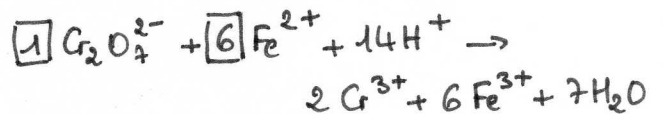 1 Cr₂O₇²⁻ + 6 Fe²⁺ + 14H⁺ →
2 Cr³⁺ + 6 Fe³⁺ + 7H₂O